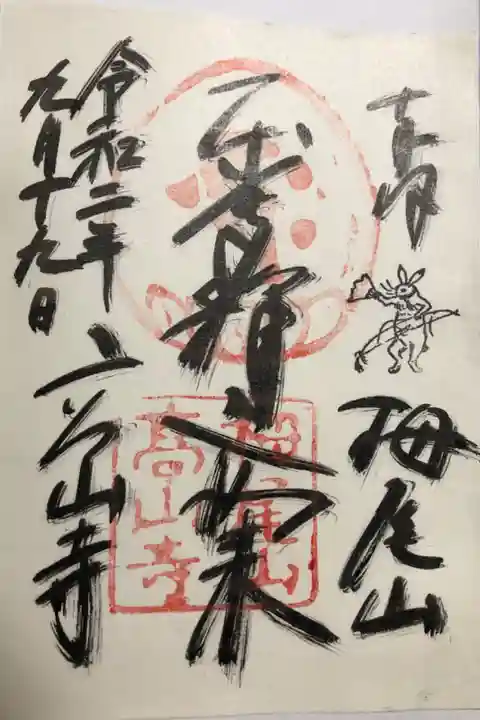 奉拝
栂尾山
釋迦如来
令和二年
九月十九日
高山寺
栂尾山
高山寺